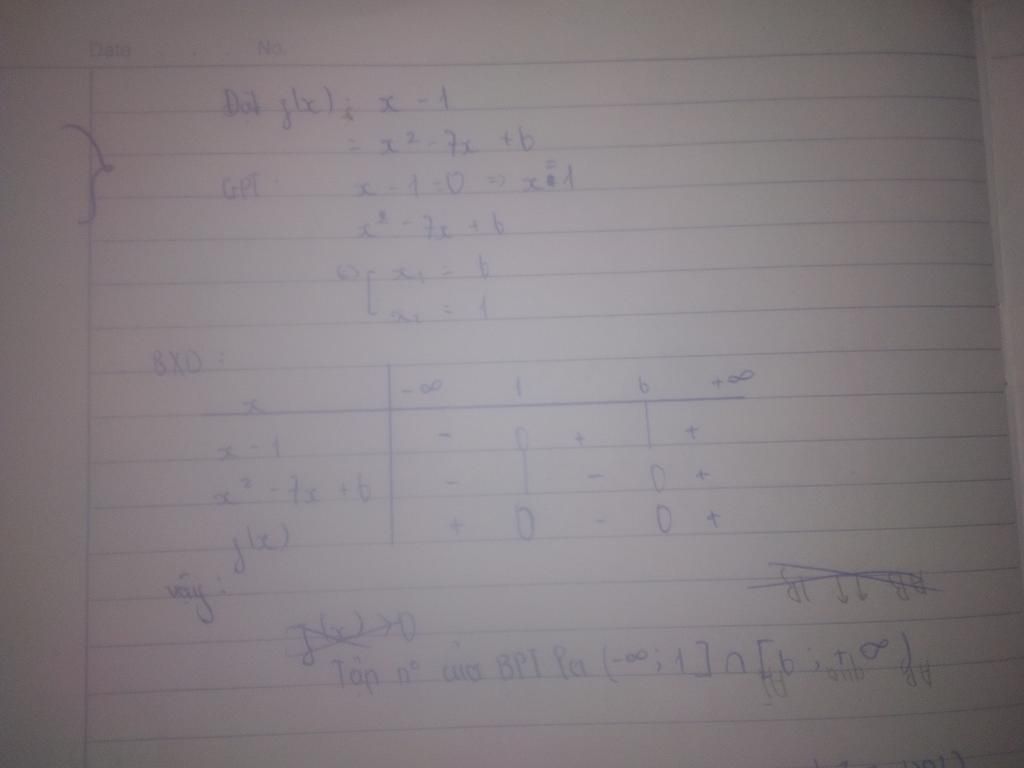 Date No.
Đặt f(x) = x - 1
= x² - 7x + 6
GPT: x - 1 = 0 => x = 1
x² - 7x + 6
<=> [ x₁ = 6
x₂ = 1
BXD:
x -∞ 1 6 +∞
x - 1 - 0 + | +
x² - 7x + 6 - | - 0 +
f(x) + 0 - 0 +
Vậy:
f(x) > 0
Tập n° của BPT là (-∞; 1] ∩ [6; +∞)